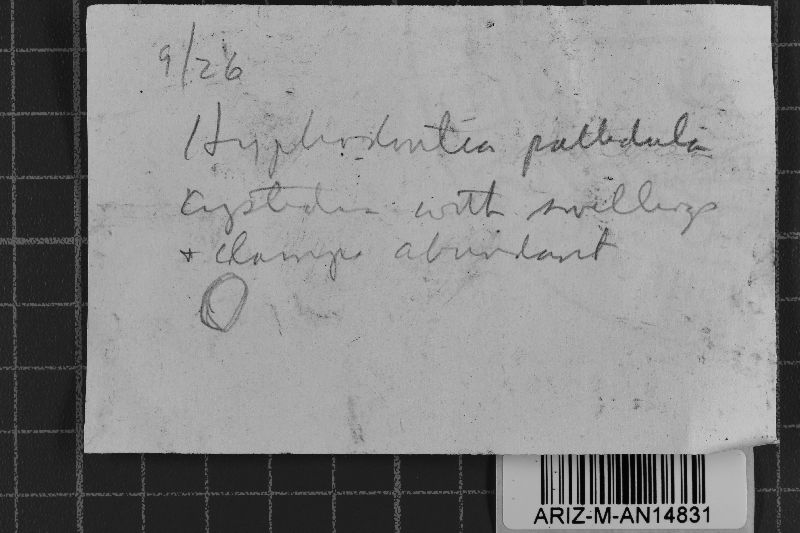 9/26
Hyphodontia pallidula
cystidia with swellings
+ clamps abundant
ARIZ-M-AN14831